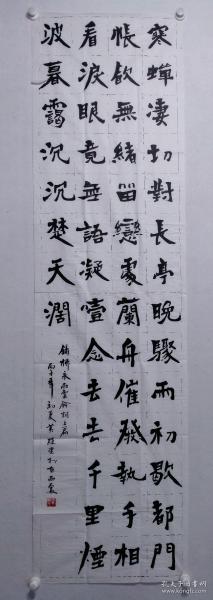 寒蟬凄切對長亭晚驟雨初歇都門
帳飲無緒留戀處蘭舟催發執手相
看淚眼竟無語凝壹念去去千里煙
波暮靄沉沉楚天濶
柳永雨霖鈴